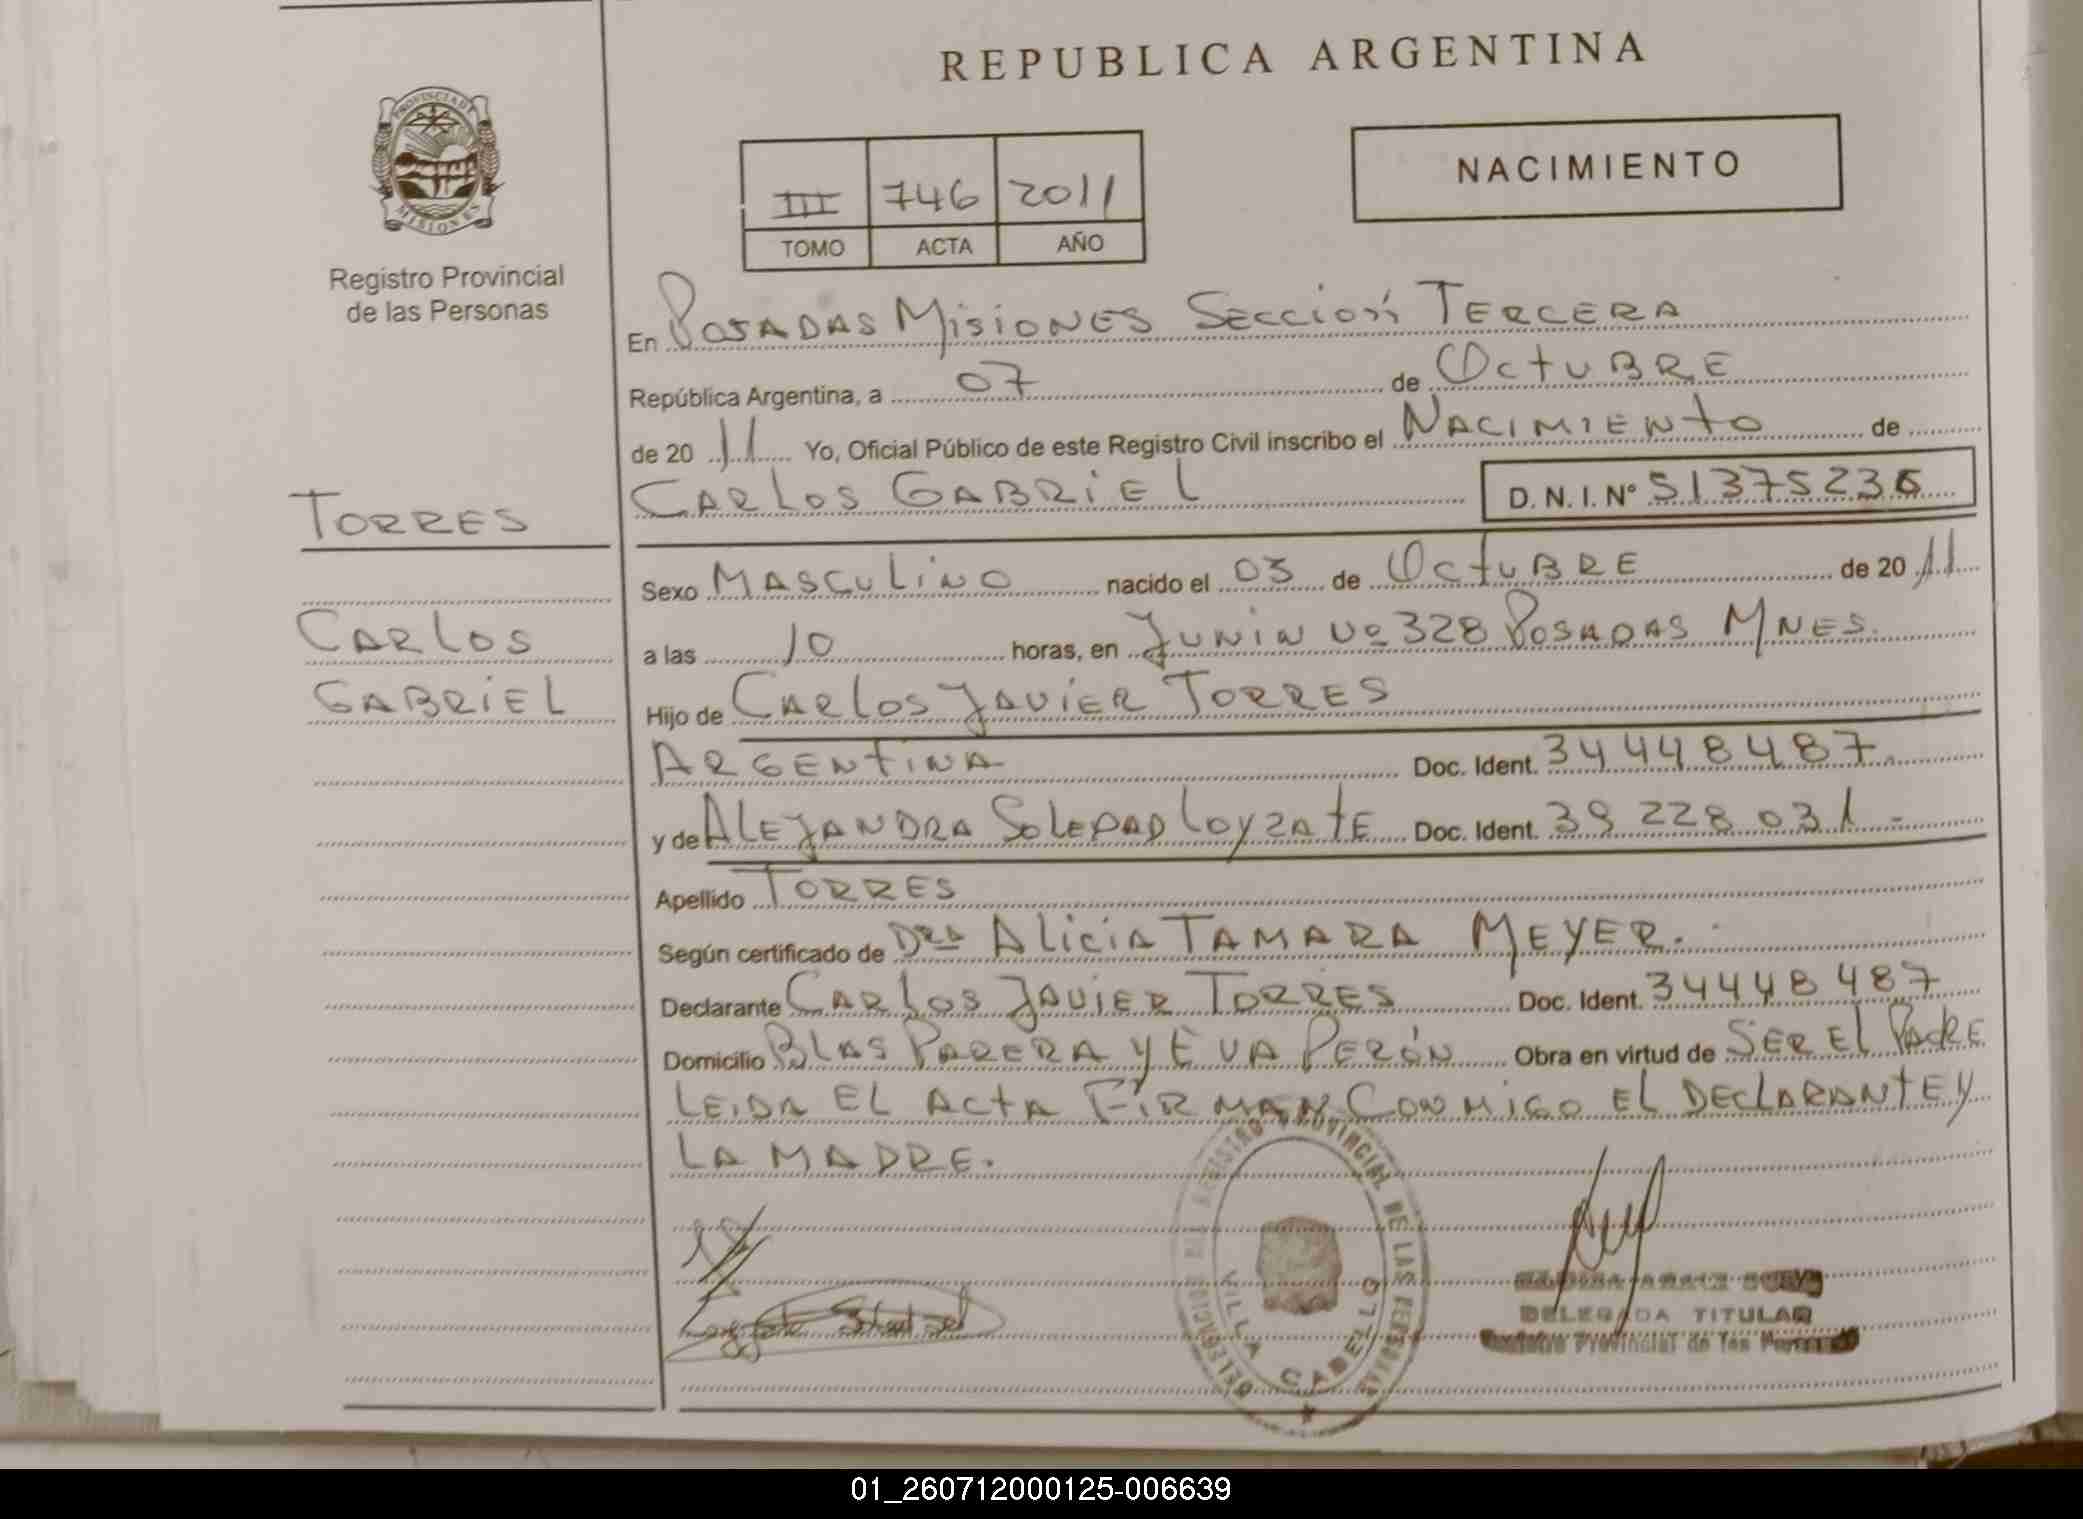 REPUBLICA ARGENTINA
PROVINCIA DE MISIONES
Registro Provincial
de las Personas
NACIMIENTO
III 746 2011
TOMO ACTA AÑO
En POSADAS MISIONES SECCION TERCERA
República Argentina, a 07 de OCTUBRE
de 20 11 Yo, Oficial Público de este Registro Civil inscribo el NACIMIENTO de
TORRES
CARLOS GABRIEL D.N.I. Nº 51375236
Sexo MASCULINO nacido el 03 de OCTUBRE de 20 11
CARLOS
a las 10 horas, en JUNIN Nº 328 POSADAS MNES.
GABRIEL
Hijo de CARLOS JAVIER TORRES
ARGENTINA Doc. Ident. 34448487.
y de ALEJANDRA SOLEDAD LOYZATE Doc. Ident. 39228031-
Apellido TORRES
Según certificado de DRA ALICIA TAMARA MEYER.
Declarante CARLOS JAVIER TORRES Doc. Ident. 34448487
Domicilio BLAS PARERA Y EVA PERÓN Obra en virtud de SER EL PADRE
LEIDA EL ACTA FIRMAN CONMIGO EL DECLARANTE Y
LA MADRE.
REGISTRO PROVINCIAL DE LAS PERSONAS
VILLA CABELLO
DELEGADA TITULAR
Provincial de las
01_260712000125-006639